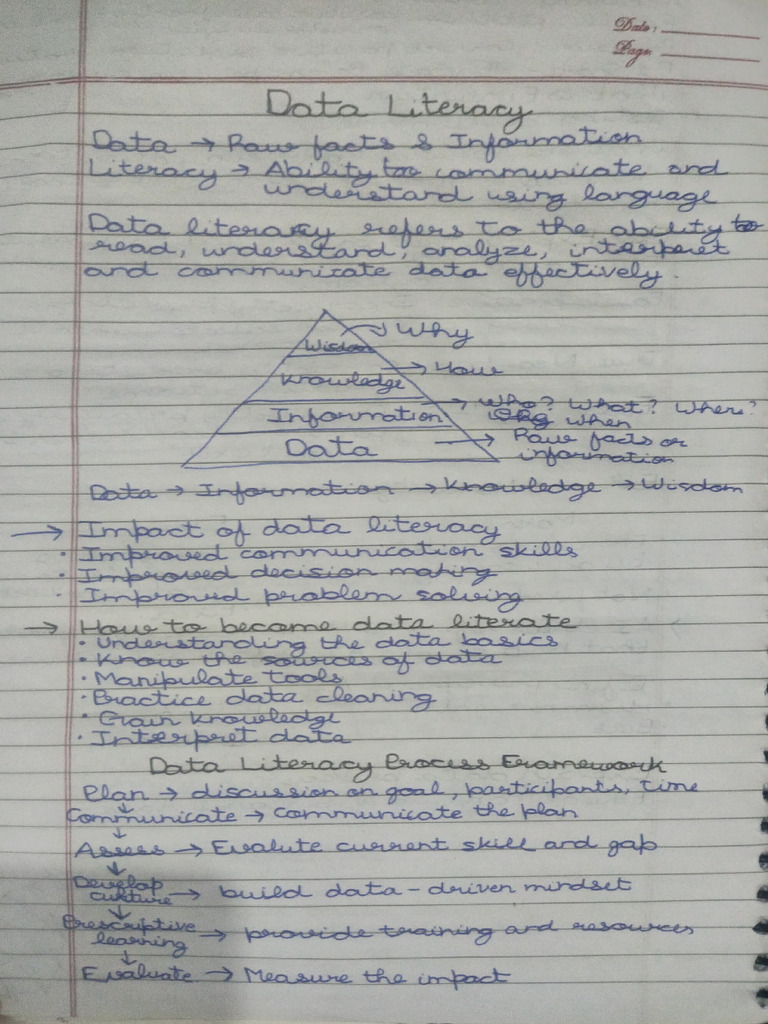 Date:
Page:
Data Literacy
Data → Raw facts & Information
Literacy → Ability to communicate and
understand using language
Data literacy refers to the ability to
read, understand, analyze, interpret
and communicate data effectively.
Wisdom → Why
Knowledge → How
Information → Who? What? Where?
When
Data → Raw facts or
information
Data → Information → Knowledge → Wisdom
→ Impact of data literacy
· Improved communication skills
· Improved decision making
· Improved problem solving
→ How to become data literate
· Understanding the data basics
· Know the sources of data
· Manipulate tools
· Practice data cleaning
· Gain knowledge
· Interpret data
Data Literacy Process Framework
Plan → discussion on goal, participants, time
↓
Communicate → Communicate the plan
↓
Assess → Evalute current skill and gap
↓
Develop
culture → build data-driven mindset
↓
Prescriptive
learning → provide training and resources
↓
Evaluate → Measure the impact